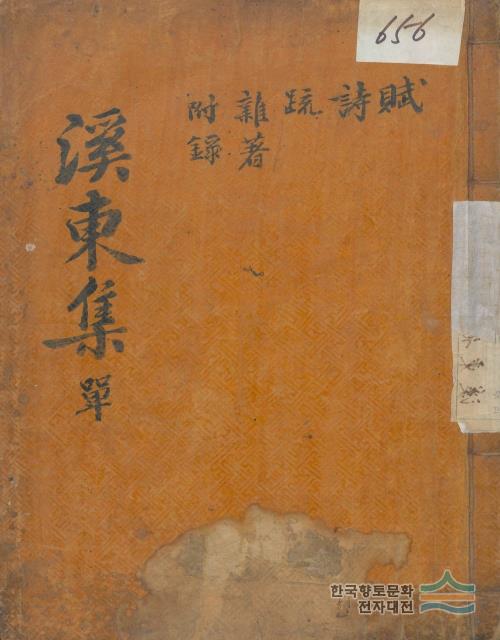 656
賦
詩
疏
雜著
附錄
溪東集 單
한국향토문화
전자대전